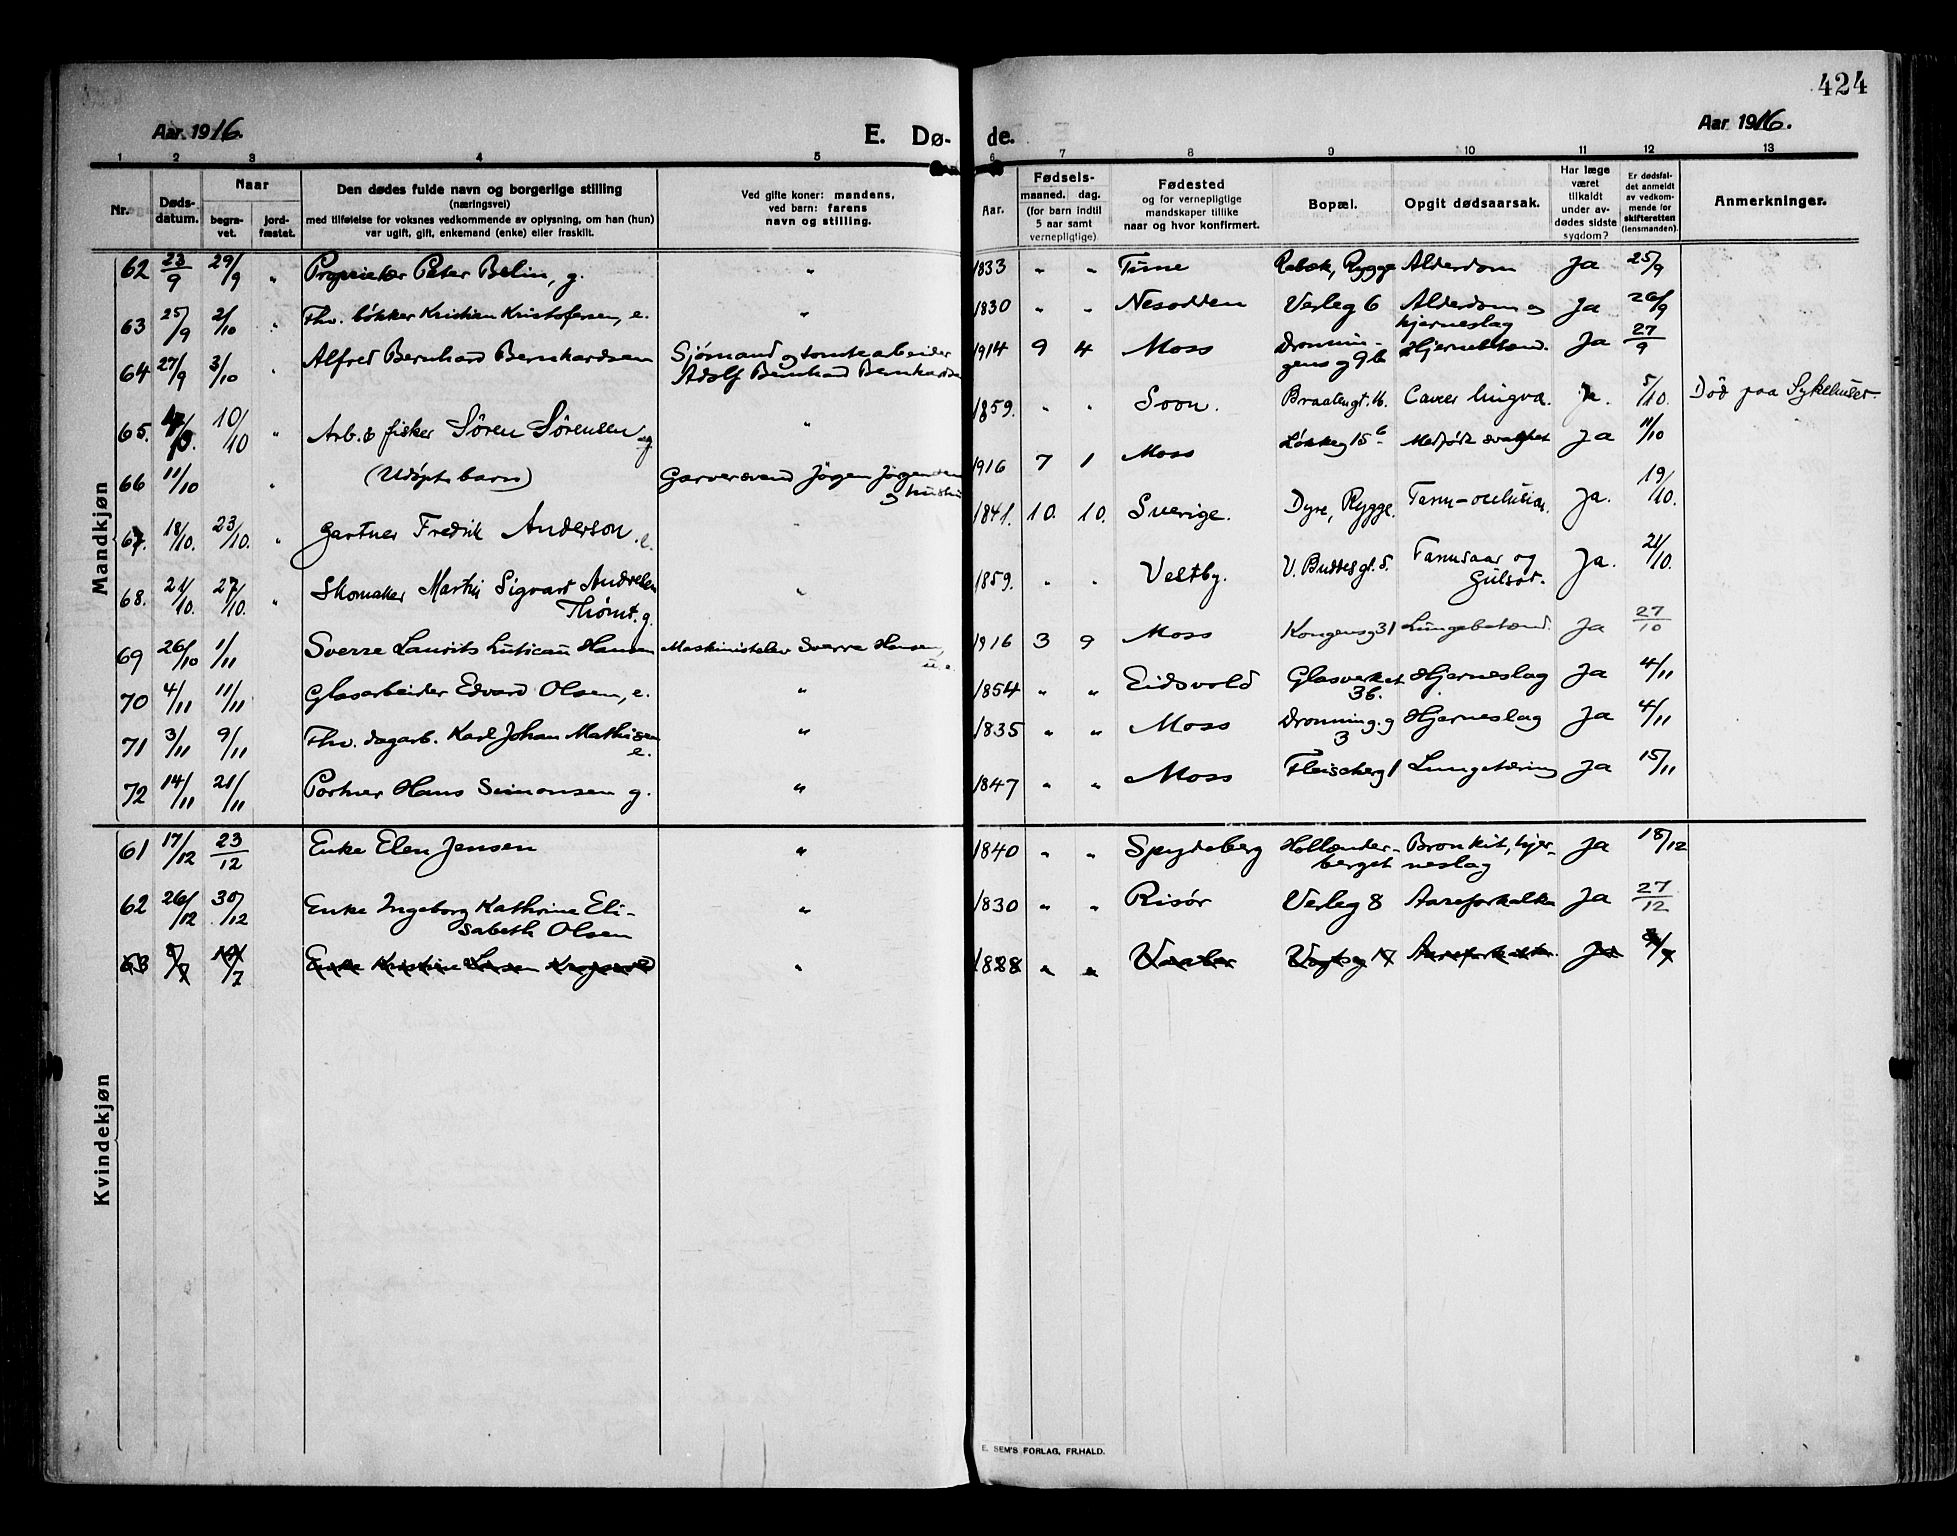 424
Aar 1916.
E. Dø-
de.
Aar 1916.
1 2 3 4 5 6 7 8 9 10 11 12 13
Nr.
Døds-
datum.
Naar
begra-
vet.
jord-
fæstet.
Den dødes fulde navn og borgerlige stilling
(næringsvei)
med tilføielse for voksnes vedkommende av oplysning, om han (hun)
var ugift, gift, enkemand (enke) eller fraskilt.
Ved gifte koner: mandens,
ved barn: farens
navn og stilling.
Aar.
Fødsels-
maaned. dag.
(for barn indtil
5 aar samt
vernepligtige)
Fødested
og for vernepligtige
mandskaper tillike
naar og hvor konfirmert.
Bopæl.
Opgit dødsaarsak.
Har læge
været
tilkaldt
under av-
dødes sidste
sygdom?
Er dødsfal-
det anmeldt
av vedkom-
mende for
skifteretten
(lensmanden).
Anmerkninger.
Mandkjøn
62 23/9 29/9 " Proprietær Peter Belin, g. " 1833 " " Time Rabæk, Rygge Alderdom Ja 25/9
63 25/9 2/10 " Fhv. bøkker Kristian Kristofersen, e. " 1830 " " Nesodden Verleg 6 Alderdom og Ja 26/9
hjerneslag
64 27/9 3/10 " Alfred Bernhard Bernhardsen Sjømand og tomtearbeider 1914 9 4 Moss Dronnin- Hjernebetænd. Ja 27/9
Adolf Bernhard Bernhardsen gens g 9b
65. 10/10 " Arb. & fisker Søren Sørensen " 1859. " " Soon. Braatengt. 16. Ja. 5/10. Død paa Sykehuset.
66 11/10 " (Udøpt barn) Garversvend Jørgen Jørgensen 1916 7 1 Moss Løkkeg 15b Medfødt svakhet Ja 11/10
67. 18/10. 23/10. " Gartner Fredrik Anderson. e. " 1841. 10. 10. Sverige. Dyre, Rygge. Ja. 19/10.
68. 21/10. 27/10. " Skomaker Martin Sigvart Andresen " 1859. " " Vestby. V. Buttes gt. 5. og Ja. 21/10.
Thømt. g. Gulsot.
69 26/10 1/11 Sverre Laurits Hansen Maskinistelev Sverre Hansen, 1916 3 9 Moss Kongensg 31 Lungebetænd. Ja 27/10
70 4/11 11/11 Glasarbeider Edvard Olsen, e. " 1854 " " Eidsvold Glasverket Hjerneslag Ja 4/11
36.
71 3/11 9/11 Fhv. dagarb. Karl Johan Mathisen " 1835 " " Moss Dronning. g Hjerneslag Ja 4/11
e. 3
72 14/11 21/11 Portner Hans Simonsen g. " 1847 " " Moss Fleischerg 1 Lungetæring Ja 15/11
Kvindekjøn
61 17/12 23/12 Enke Elen Jensen " 1840 " " Spydeberg Hollænder- Bronkit, hjer- Ja 18/12
berget neslag
62 26/12 30/12 Enke Ingeborg Kathrine Eli- " 1830 " " Risør Verleg 8 Aareforkalkn Ja 27/12
sabeth Olsen
63 8/7 Enke Kristine Larsen " 1828 " " Vaaler Vogtsg 17 Aareforkalkn. Ja
E. SEM'S FORLAG, FR.HALD.